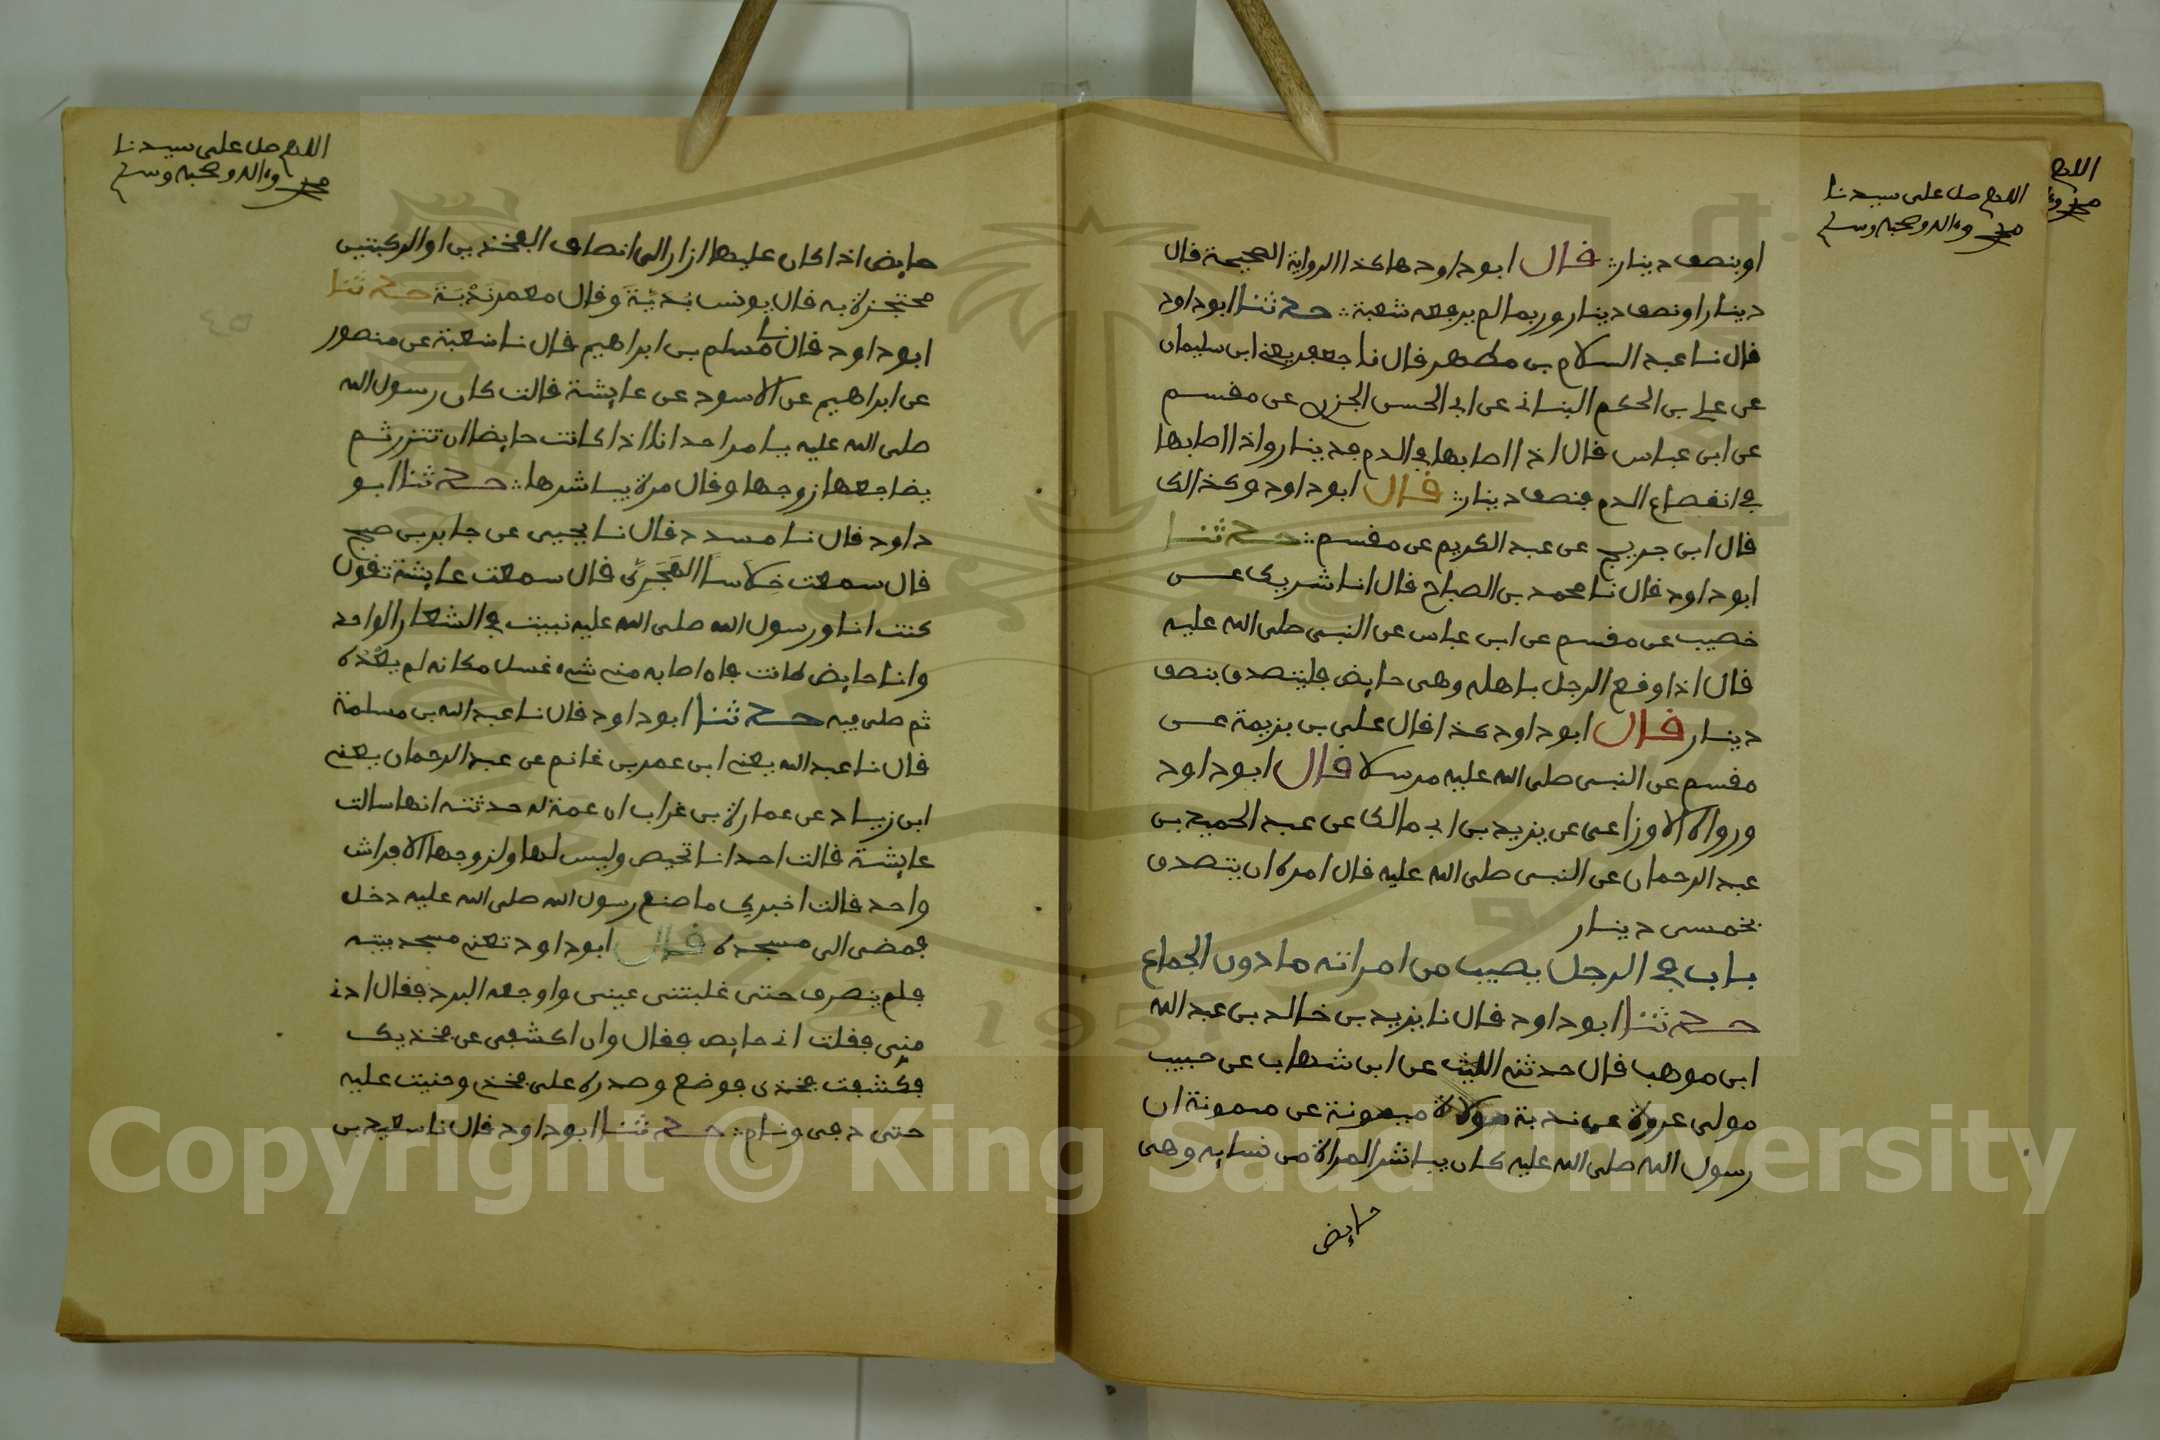 اللهم صل على سيدنا
محمد وءاله وصحبه وسلم
او بنصف دينار قال ابو داود هاكذا الرواية الصحيحة قال
دينار او نصف دينار وربما لم يرفعه شعبة حدثنا ابو داود
قال نا عبد السلام بن مطهر قال نا جعفر يعني ابن سليمان
عن علي بن الحكم البناني عن ابي الحسن الجزري عن مقسم
عن ابن عباس قال اذا اصابها في الدم فدينار واذا اصابها
في انقطاع الدم فنصف دينار قال ابو داود وكذالك
قال ابن جريج عن عبد الكريم عن مقسم حدثنا
ابو داود قال نا محمد بن الصباح قال انا شريك عن
خصيب عن مقسم عن ابن عباس عن النبي صلى الله عليه
قال اذا وقع الرجل باهله وهي حايض فليتصدق بنصف
دينار قال ابو داود كذا قال علي بن بزيمة عن
مقسم عن النبي صلى الله عليه مرسلا قال ابو داود
ورواه الاوزاعي عن يزيد بن ابي مالك عن عبد الحميد بن
عبد الرحمان عن النبي صلى الله عليه قال امره ان يتصدق
بخمسي دينار
باب في الرجل يصيب من امراته ما دون الجماع
حدثنا ابو داود قال نا يزيد بن خالد بن عبد الله
ابن موهب قال حدثني الليث عن ابن شهاب عن حبيب
مولى عروة عن ندبة مولاة ميمونة عن ميمونة ان
رسول الله صلى الله عليه كان يباشر المراة من نسايه وهي
حايض
اللهم صل على سيدنا
محمد وءاله وصحبه وسلم
حايض اذا كان عليها ازار الى انصاف الفخذين او الركبتين
محتجزة به قال يونس نديّة وقال معمر نُدْبَة حدثنا
ابو داود قال نا مسلم بن ابراهيم قال نا شعبة عن منصور
عن ابراهيم عن الاسود عن عايشة قالت كان رسول الله
صلى الله عليه يامر احدانا اذا كانت حايضا ان تتزر ثم
يضاجعها زوجها وقال مرة يباشرها حدثنا ابو
داود قال نا مسدد قال نا يحيى عن جابر بن صبح
قال سمعت خلاساً الهَجَرِيّ قال سمعت عايشة تقول
كنت انا ورسول الله صلى الله عليه نبيت في الشعار الواحد
وانا حايض طامث فان اصابه مني شيء غسل مكانه لم يعْدُه
ثم صلى فيه حدثنا ابو داود قال نا عبد الله بن مسلمة
قال نا عبد الله يعني ابن عمر بن غانم عن عبد الرحمان يعني
ابن زياد عن عمارة بن غراب ان عمة له حدثته انها سالت
عايشة قالت احدانا تحيض وليس لها ولزوجها الا فراش
واحد قالت اخبرك ما صنع رسول الله صلى الله عليه دخل
فمضى الى مسجده قال ابو داود تعني مسجد بيته
فلم ينصرف حتى غلبتني عيني واوجعه البرد فقال ادني
مني فقلت اني حايض فقال وان اكشفي عن فخذيك
فكشفت فخذي فوضع وصدره على فخذي وحنيت عليه
حتى دفي ونام حدثنا ابو داود قال نا سعيد بن
اللهم
محمد وء
Copyright © King Saud University
1957